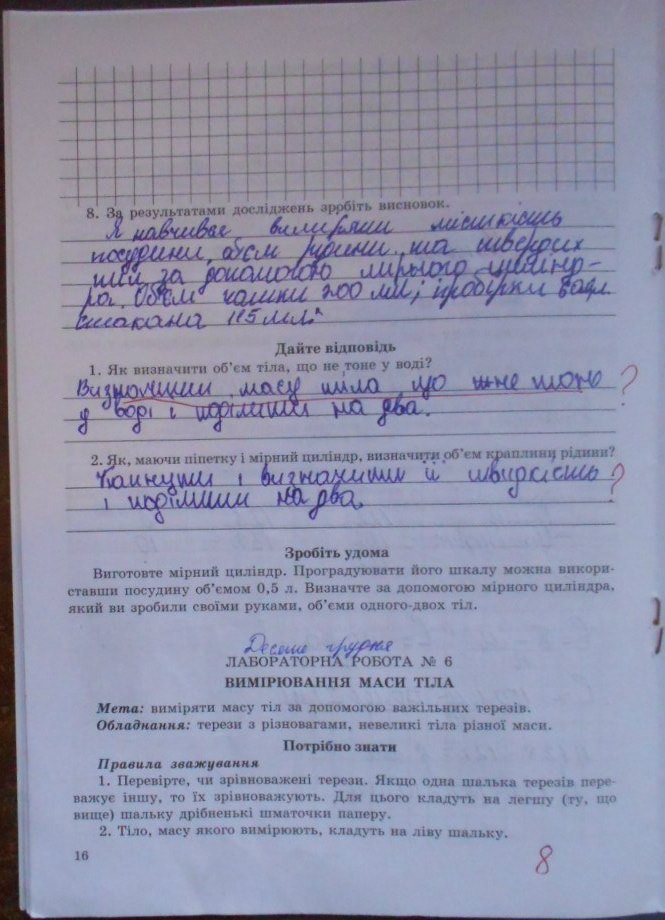 8. За результатами досліджень зробіть висновок.
Я навчився виміряти місткість
посудини, об'єм рідини та твердих
тіл за допомогою мірного циліндра
ра. Об'єм чашки 200 мл; пробірки
стакана 115 мл.
Дайте відповідь
1. Як визначити об'єм тіла, що не тоне у воді?
Визначити масу тіла що не тоне ?
у воді і поділити на два.
2. Як, маючи піпетку і мірний циліндр, визначити об'єм краплини рідини?
Капнути і визначити її швидкість ?
і поділити на два.
Зробіть удома
Виготовте мірний циліндр. Проградуювати його шкалу можна викори-
ставши посудину об'ємом 0,5 л. Визначте за допомогою мірного циліндра,
який ви зробили своїми руками, об'єми одного-двох тіл.
Десяте грудня
ЛАБОРАТОРНА РОБОТА № 6
ВИМІРЮВАННЯ МАСИ ТІЛА
Мета: виміряти масу тіл за допомогою важільних терезів.
Обладнання: терези з різновагами, невеликі тіла різної маси.
Потрібно знати
Правила зважування
1. Перевірте, чи зрівноважені терези. Якщо одна шалька терезів пере-
важує іншу, то їх зрівноважують. Для цього кладуть на легшу (ту, що
вище) шальку дрібненькі шматочки паперу.
2. Тіло, масу якого вимірюють, кладуть на ліву шальку.
16
8